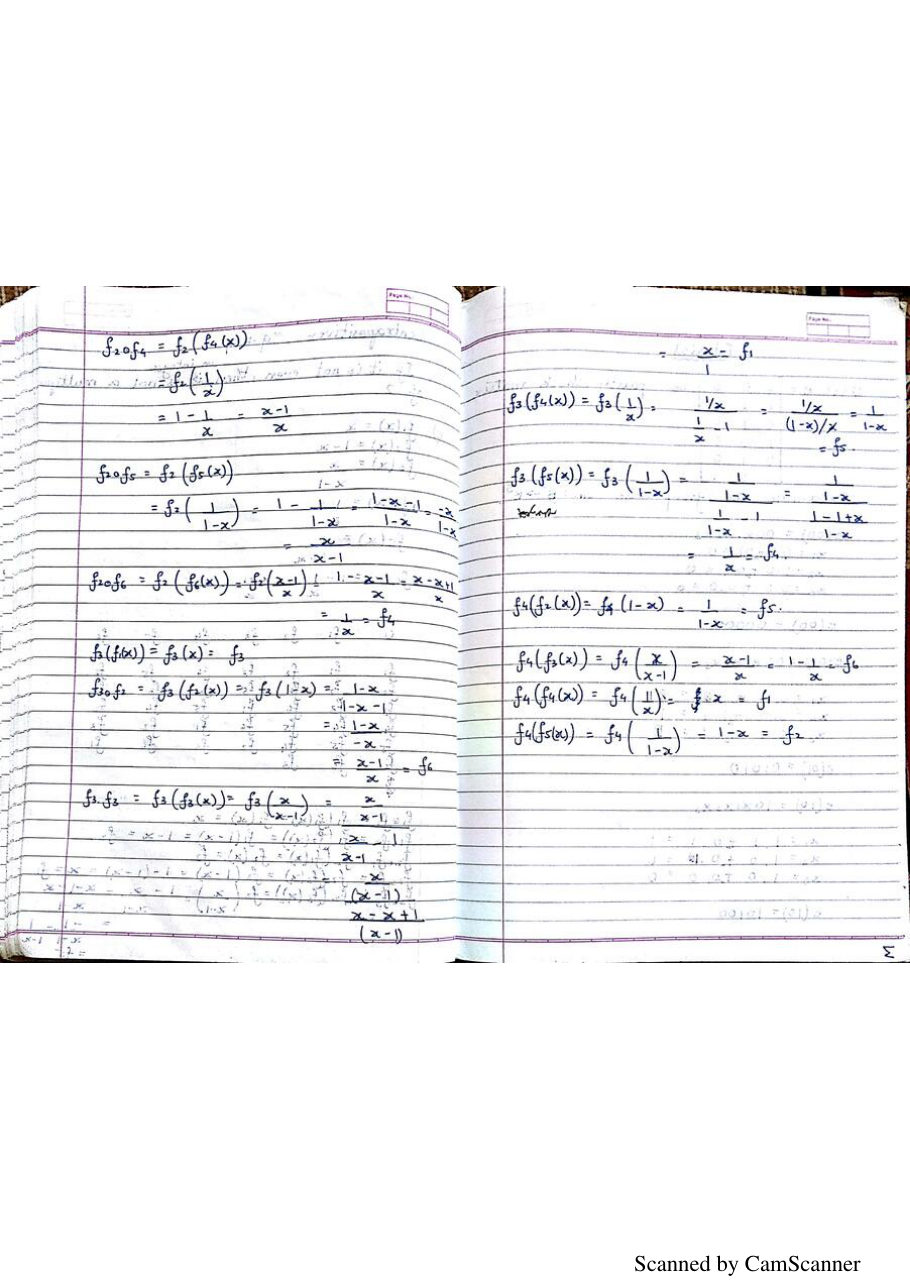 Page No.
f₂of₄ = f₂(f₄(x))
= f₂(1/x)
= 1 - 1/x = x-1/x
f₂of₅ = f₂(f₅(x))
= f₂(1/1-x) = 1 - 1/1-x = 1-x-1/1-x = -x/1-x
= x/x-1
f₂of₆ = f₂(f₆(x)) = f₂(x-1/x) = 1 - x-1/x = x-x+1/x
= 1/x = f₄
f₃(f₁(x)) = f₃(x) = f₃
f₃of₂ = f₃(f₂(x)) = f₃(1-x) = 1-x/1-x-1
= 1-x/-x
= x-1/x = f₆
f₃.f₃ = f₃(f₃(x)) = f₃(x/x-1) = x/x-1
x/x-1 - 1
= x/(x-1)
x-x+1/(x-1)
Page No.
= x/1 = f₁
f₃(f₄(x)) = f₃(1/x) = 1/x / 1/x - 1 = 1/x / (1-x)/x = 1/1-x
= f₅.
f₃(f₅(x)) = f₃(1/1-x) = 1/1-x / 1/1-x - 1 = 1/1-x / 1-1+x/1-x
= 1/x = f₄.
f₄(f₂(x)) = f₄(1-x) = 1/1-x = f₅.
f₄(f₃(x)) = f₄(x/x-1) = x-1/x = 1 - 1/x = f₆
f₄(f₄(x)) = f₄(1/x) = x = f₁
f₄(f₅(x)) = f₄(1/1-x) = 1-x = f₂
Scanned by CamScanner